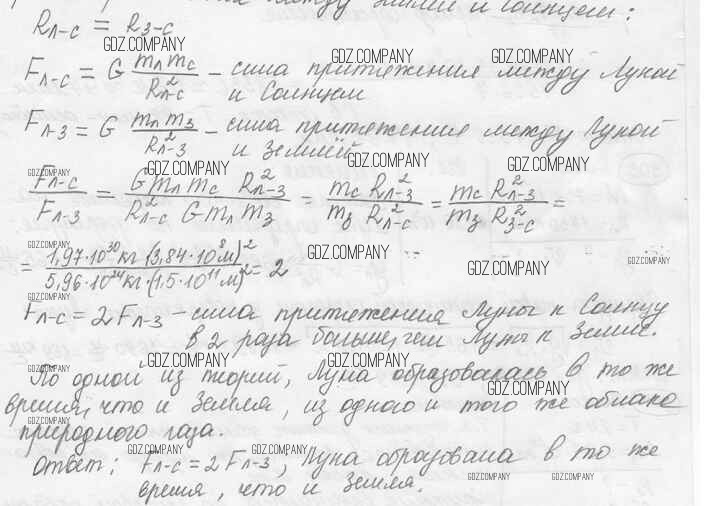 между Землей и Солнцем:
Rл-с = Rз-с
GDZ.COMPANY
GDZ.COMPANY
GDZ.COMPANY
Fл-с = G mл mс / R²л-с – сила притяжения между Луной
и Солнцем
Fл-з = G mл mз / R²л-з – сила притяжения между Луной
и Землей
GDZ.COMPANY
GDZ.COMPANY
GDZ.COMPANY
GDZ.COMPANY
Fл-с / Fл-з = G mл mс R²л-з / R²л-с G mл mз = mс R²л-з / mз R²л-с = mс R²л-з / mз R²з-с =
GDZ.COMPANY
GDZ.COMPANY
GDZ.COMPANY
GDZ.COMPANY
= 1,97·10³⁰кг·(3,84·10⁸м)² / 5,96·10²⁴кг·(1,5·10¹¹м)² = 2
GDZ.COMPANY
Fл-с = 2Fл-з – сила притяжения Луны к Солнцу
в 2 раза больше, чем Луны к Земле.
GDZ.COMPANY
GDZ.COMPANY
GDZ.COMPANY
По одной из теорий, Луна образовалась в то же
GDZ.COMPANY
время, что и Земля, из одного и того же облака
GDZ.COMPANY
природного газа.
GDZ.COMPANY
GDZ.COMPANY
GDZ.COMPANY
Ответ: Fл-с = 2Fл-з, Луна образована в то же
GDZ.COMPANY
GDZ.COMPANY
время, что и Земля.